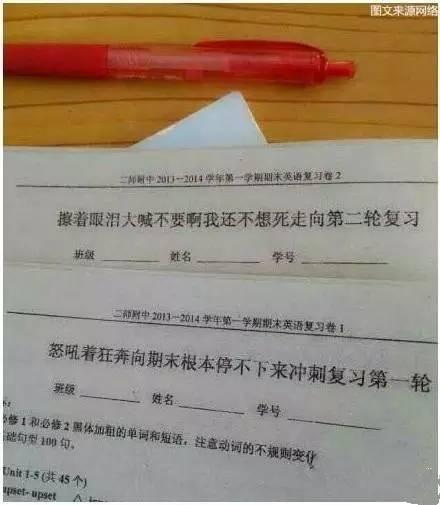 图文来源网络
二师附中 2013—2014 学年第一学期期末英语复习卷 2
擦着眼泪大喊不要啊我还不想死走向第二轮复习
班级 姓名 学号
二师附中 2013—2014 学年第一学期期末英语复习卷 1
怒吼着狂奔向期末根本停不下来冲刺复习第一轮
班级 姓名 学号
必修 1 和必修 2 黑体加粗的单词和短语，注意动词的不规则变化
句型 100 句。
Unit 1-5 (共 45 个)
upset- upset